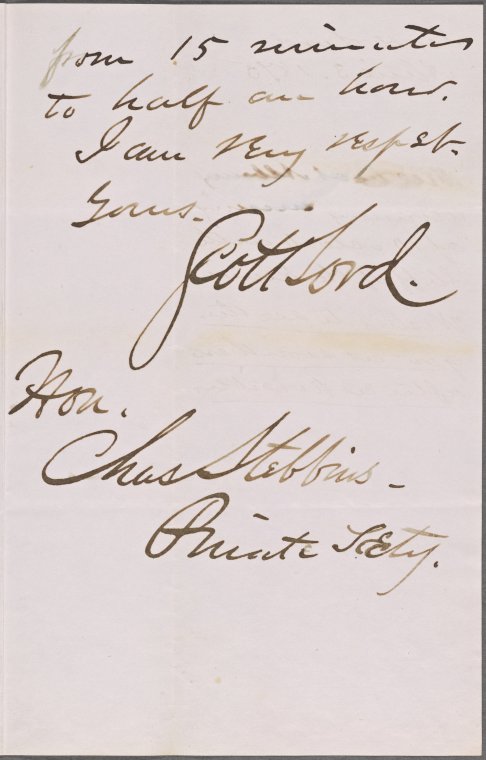 from 15 minutes
to half an hour.
I am very respet.
Yours-
Scott Lord.
Hon.
Chas Stebbins-
Private Secty.